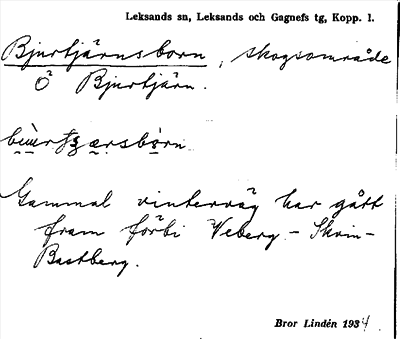 Leksands sn, Leksands och Gagnefs tg, Kopp. l.
Bjurtjärnsborn, skogsområde
Ö Bjurtjärn.
Gammal vinterväg har gått
fram förbi Veberg - Skrin-
Bastberg.
Bror Lindén 1934